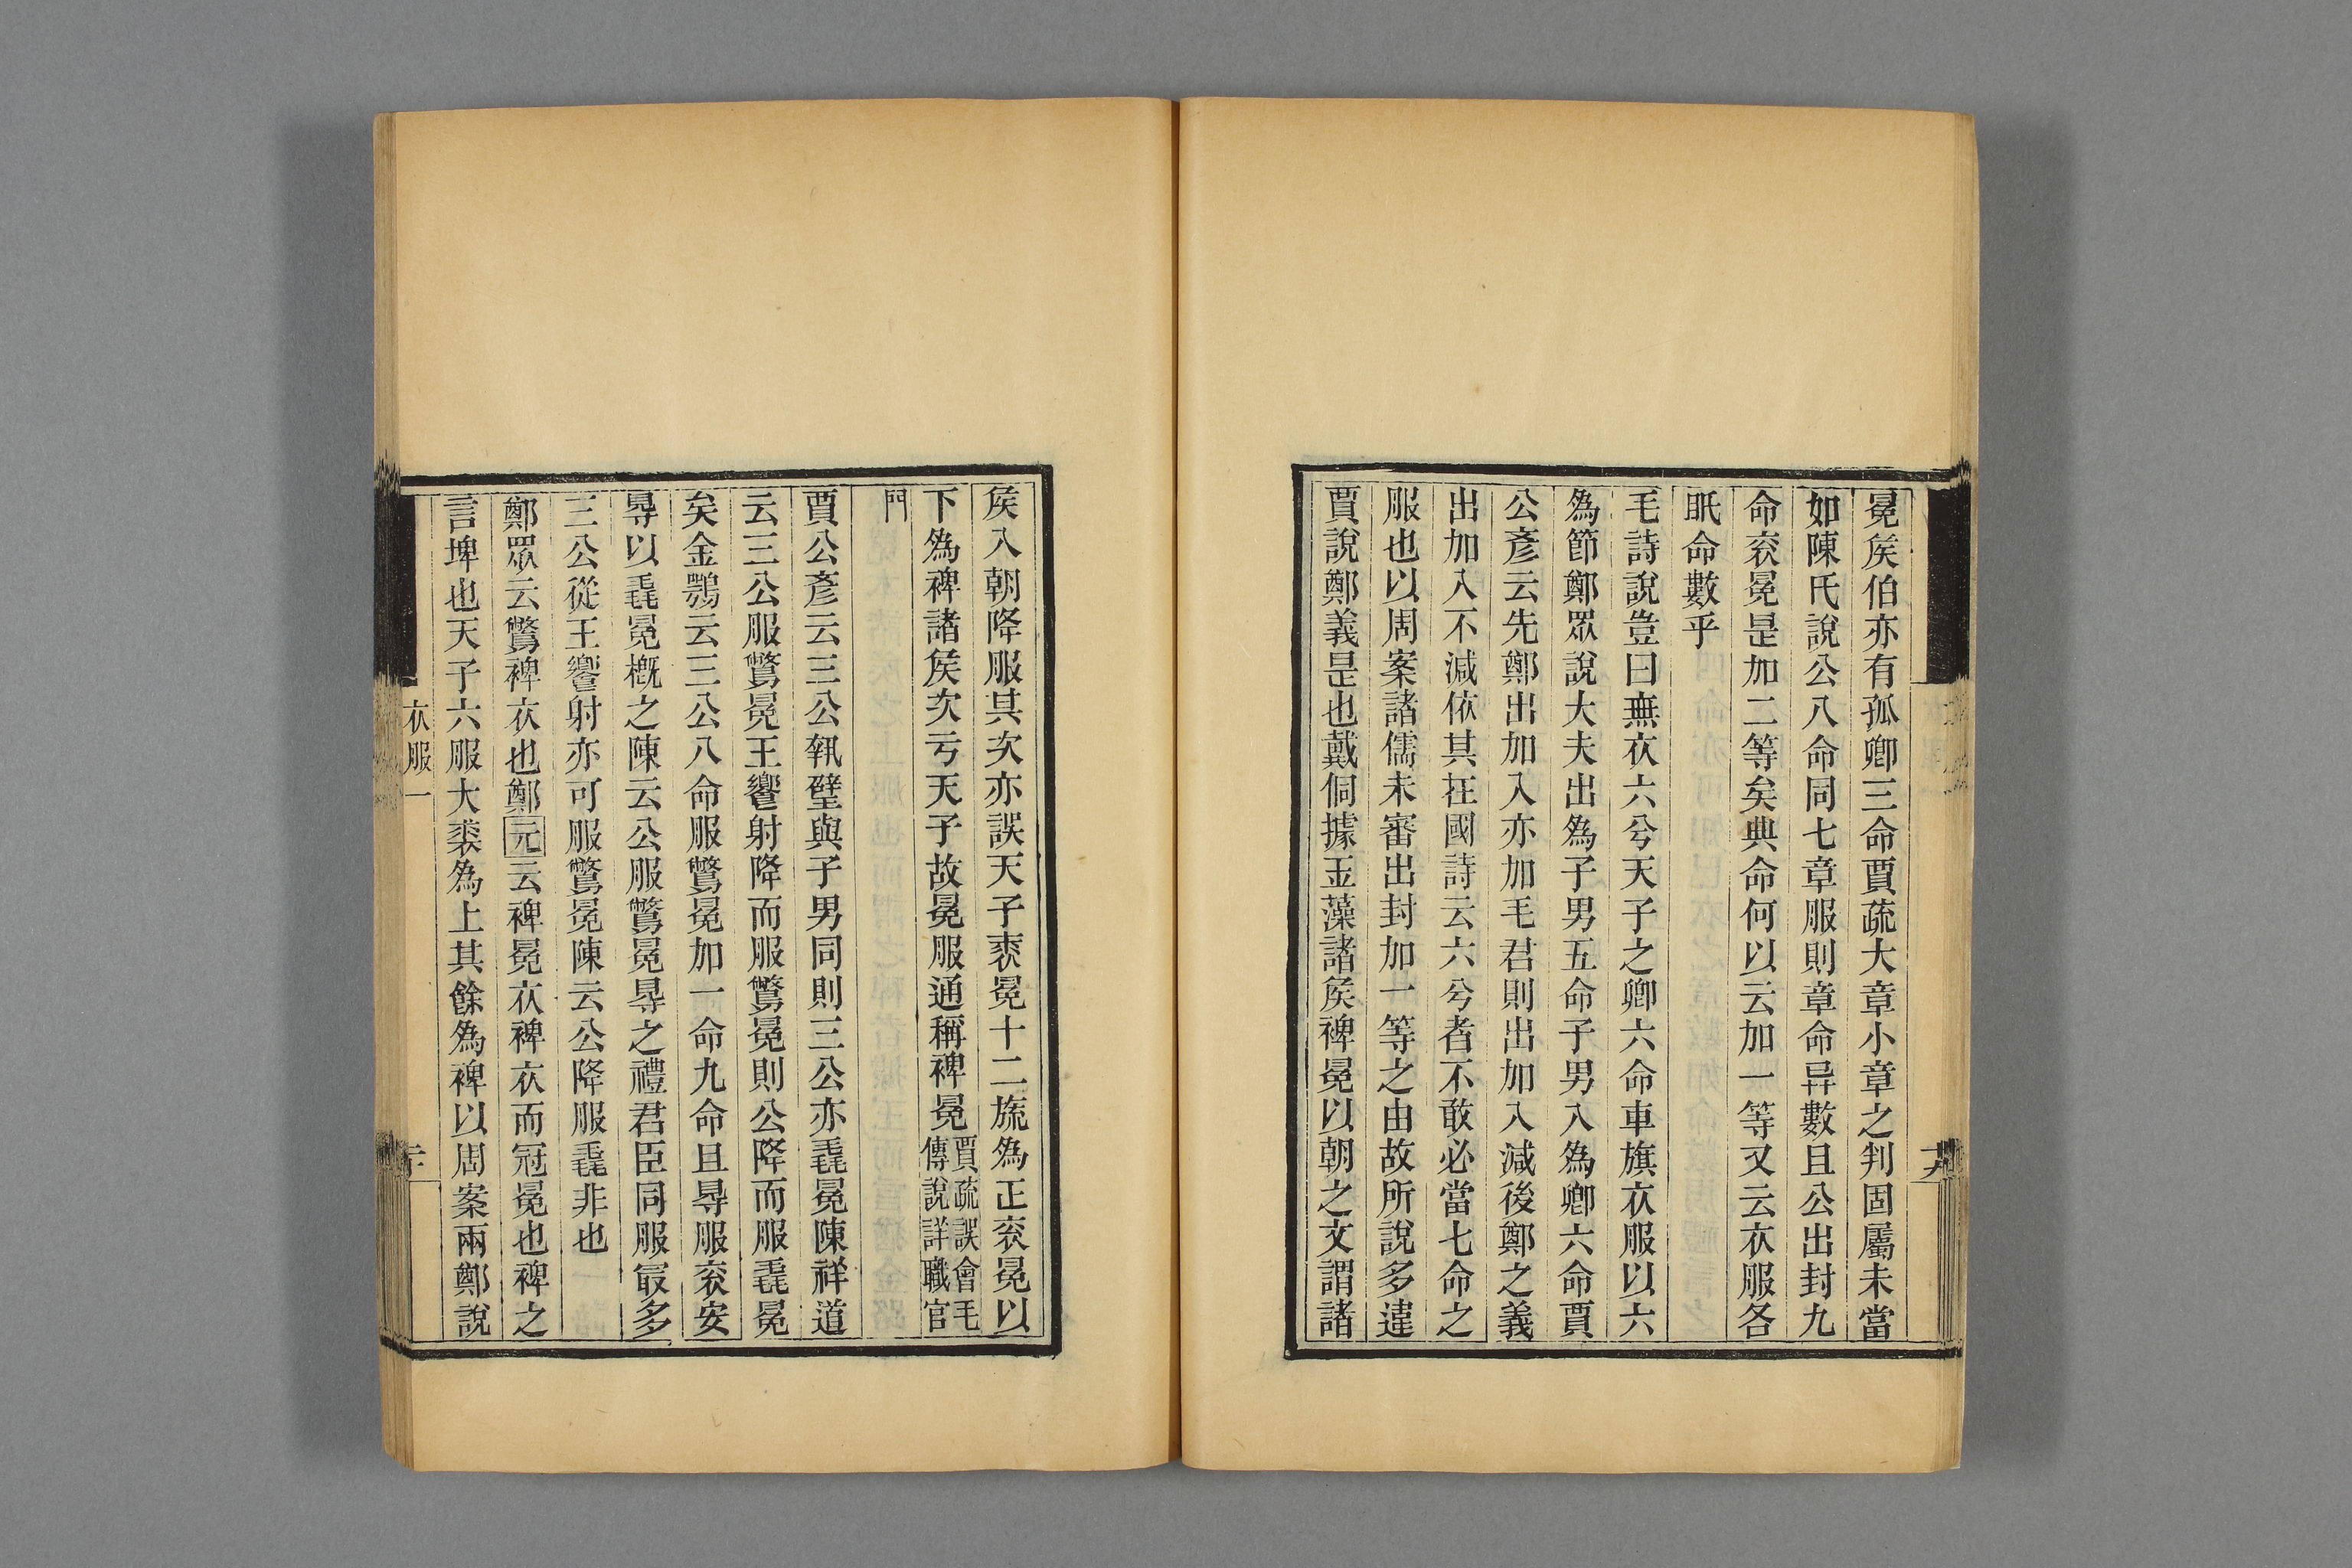 冕矦伯亦有孤卿三命賈疏大章小章之判固屬未當
如陳氏說公八命同七章服則章命异數且公出封九
命衮冕是加二等矣典命何以云加一等又云衣服各
眂命數乎
毛詩說豈曰無衣六兮天子之卿六命車旗衣服以六
為節鄭眾說大夫出為子男五命子男入為卿六命賈
公彥云先鄭出加入亦加毛君則出加入減後鄭之義
出加入不減依其在國詩云六兮者不敢必當七命之
服也以周案諸儒未審出封加一等之由故所說多違
賈說鄭義是也戴侗據玉藻諸矦裨冕以朝之文謂諸
十九
矦入朝降服其次亦誤天子衮冕十二旒為正衮冕以
下為裨諸矦次亏天子故冕服通稱裨冕賈疏誤會毛傳說詳職官
門
賈公彥云三公執璧與子男同則三公亦毳冕陳祥道
云三公服鷩冕王饗射降而服鷩冕則公降而服毳冕
矣金鶚云三公八命服鷩冕加一命九命且㝵服衮安
㝵以毳冕概之陳云公服鷩冕㝵之禮君臣同服冣多
三公從王饗射亦可服鷩冕陳云公降服毳非也
鄭眾云鷩裨衣也鄭元云裨冕衣裨衣而冠冕也裨之
言埤也天子六服大裘為上其餘為裨以周案兩鄭說
衣服一
二十